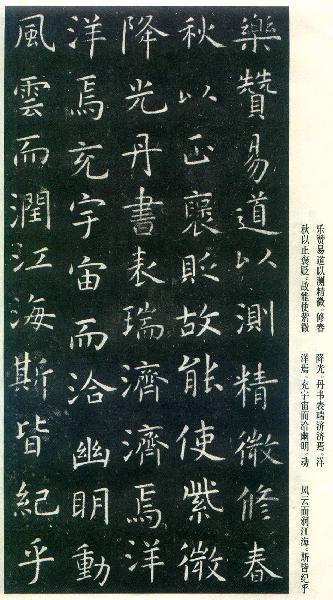 樂贊易道以測精微修春
秋以正褒貶故能使紫微
降光丹書表瑞濟濟焉洋
洋焉充宇宙而洽幽明動
風雲而潤江海斯皆紀乎
乐赞易道以测精微。修春
秋以止褒贬。故能使紫微
降光。丹书表瑞济济焉。洋
洋焉。充宇宙而洽幽明。动
风云而润江海。斯皆纪乎